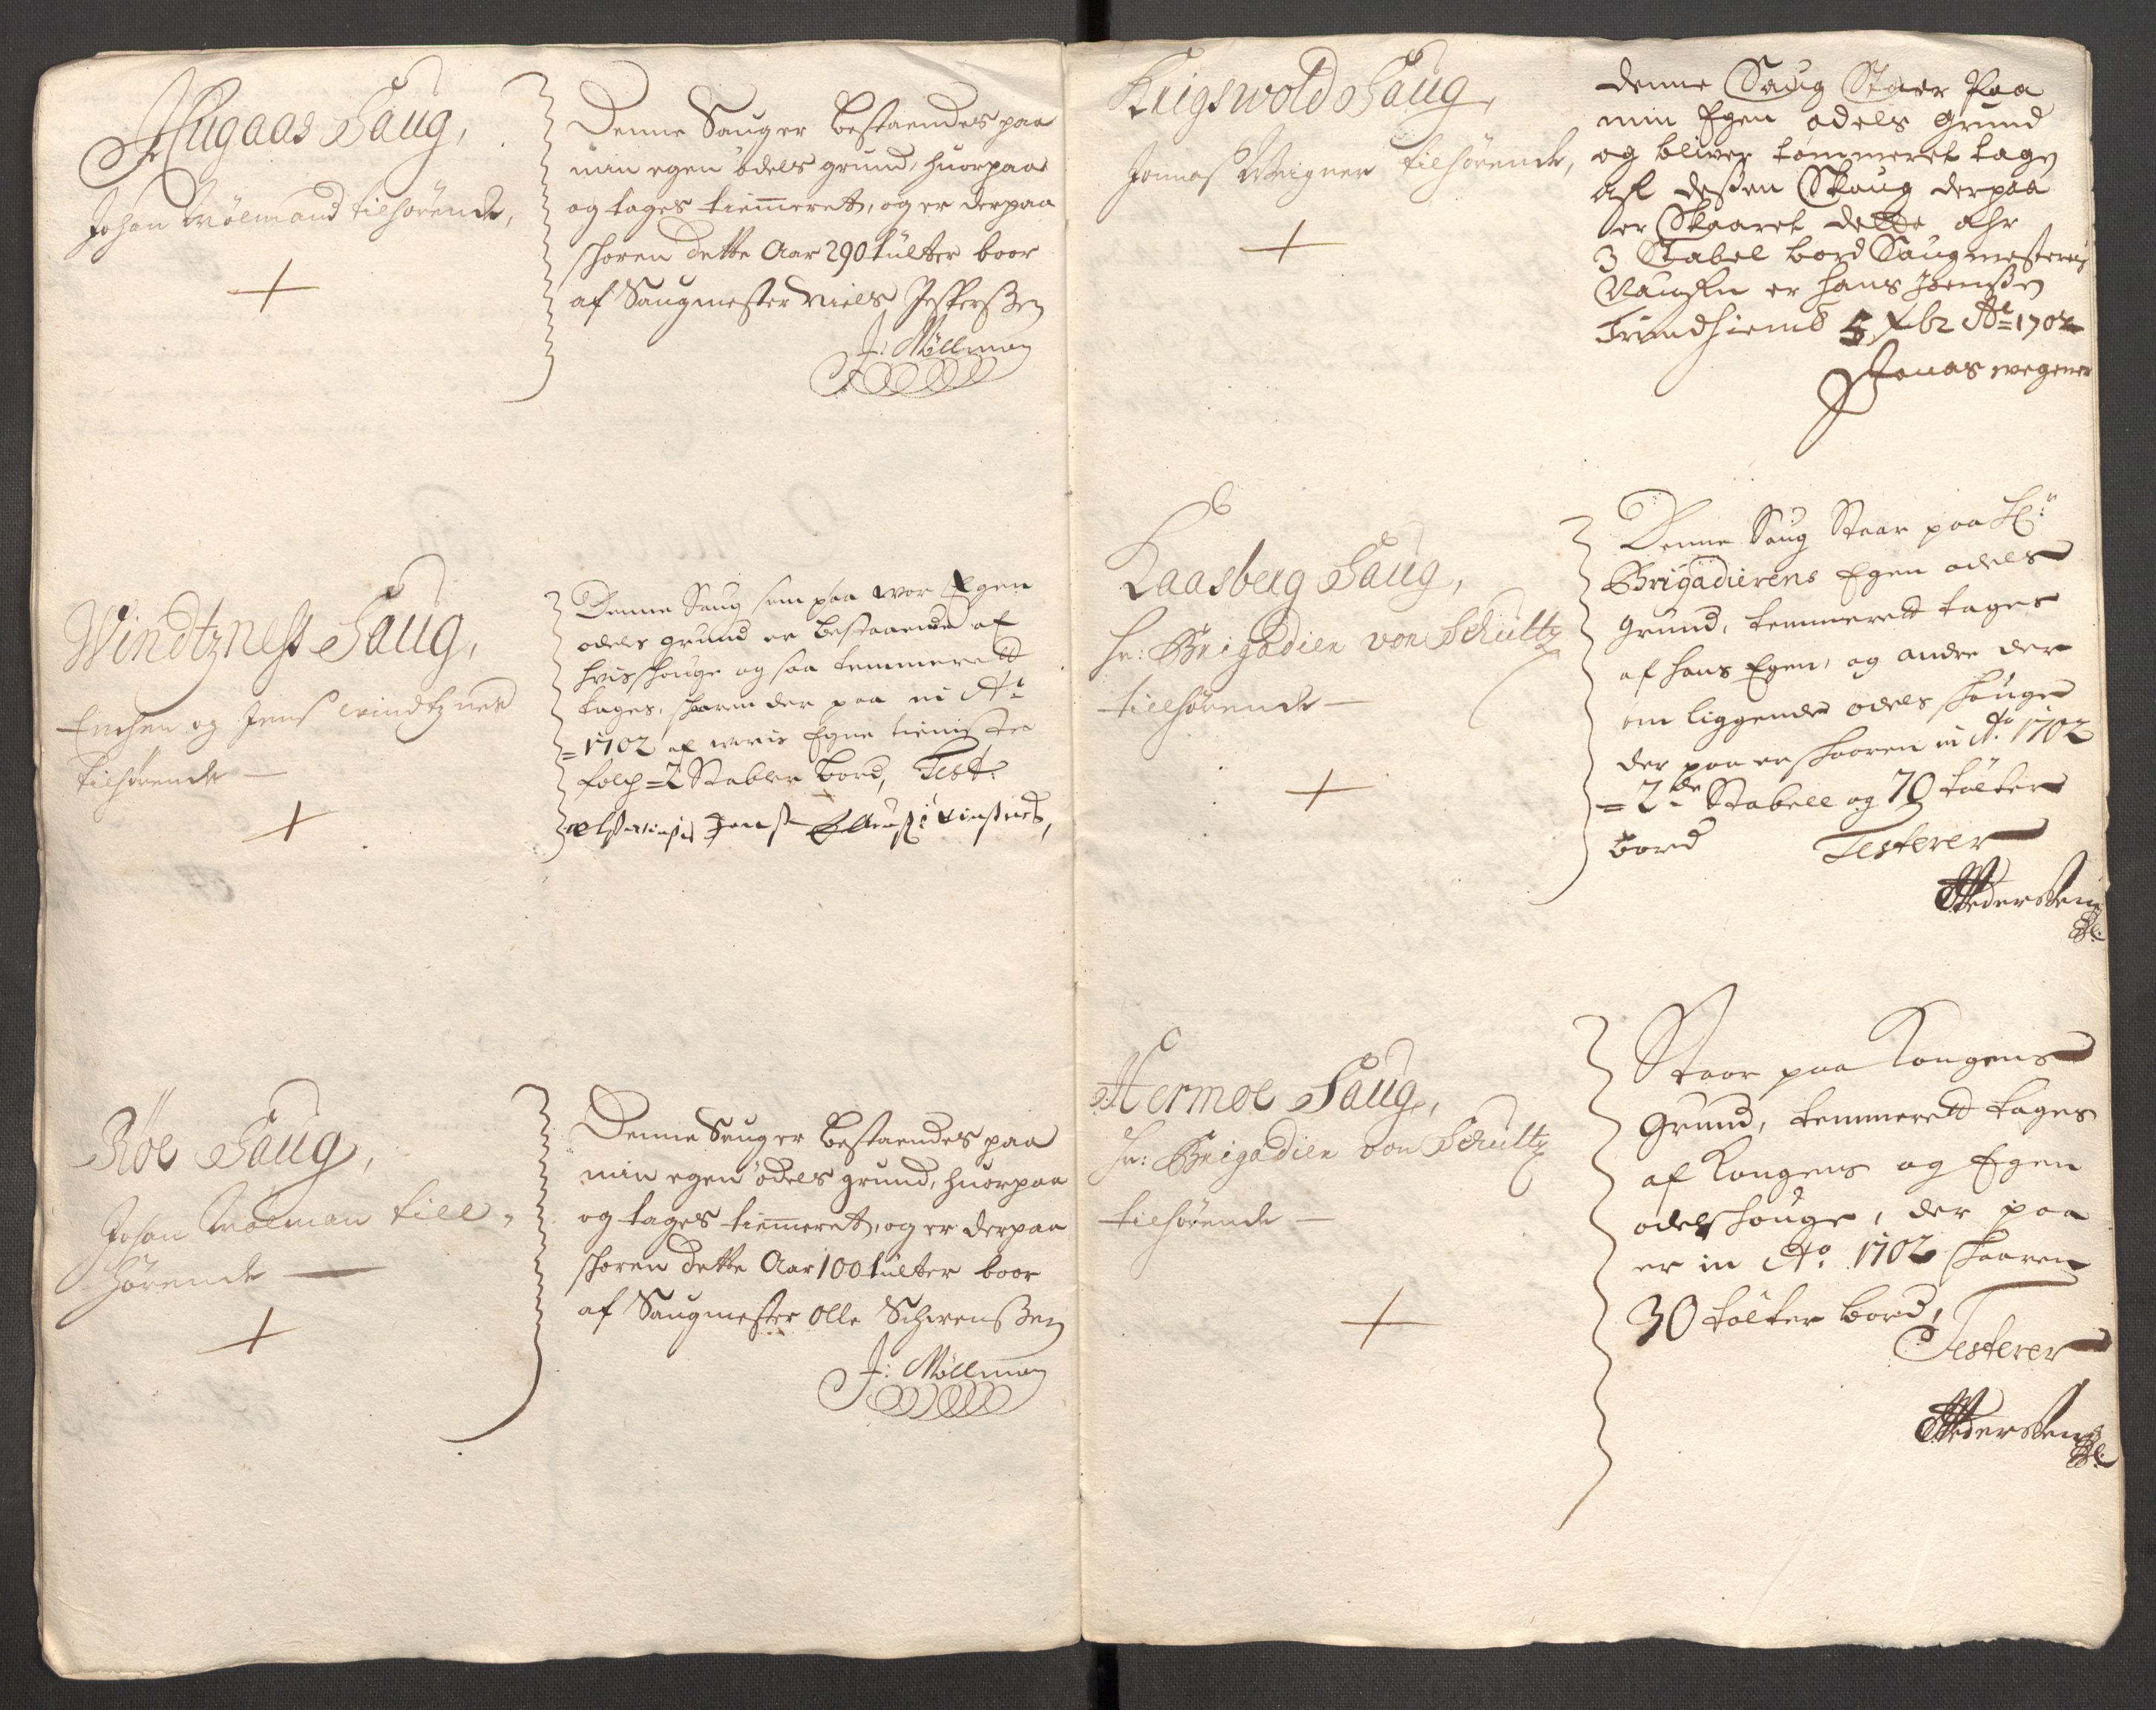 Hugaas Saug,
Johan Mølmand tilhørende,
Denne Saug er bestaendes paa
min egen odels grund, huorpaa
og tages timmeret, og er derpaa
skoren dette Aar 290 tulter boor
af Saugmester Niels Jespersen
J: Möllman
Windtzness Saug,
Enchen og Jens Windtznes
tilhørende
Denne Saug som paa wor Egen
odels grund er bestaaende af
hvis skouge og saa temmerett
tages, skaaren der paa in Ao
1702 af woris Egne tieniste
folch 2 Stabler bord, Test:
Röe Saug,
Johan Mølman till,
hørende
Denne Saug er bestaendes paa
min egen odels grund, huorpaa
og tages timmeret, og er derpaa
skoren dette Aar 100 tulter boor
af Saugmester Olle
J: Möllman
Krigswold Saug,
Jonnas Weigner tilhørende,
denne Saug Staer Paa
min Egen odels grund
og bliver tommeret tagen
aff dessen Skoug derpaa
er Skaaret dette ahr
3 Stabel bord Saugmesterens
Naufn er Hans
Trundhiemb 5 Xbr Ao 1702
Jonas wegener
Kaasberg Saug,
Hr: Brigadier von Schultz
tilhørende
Denne Saug Staar paa Hr:
Brigadierens Egen odels
grund, temmerett tages
af hans Egen, og andre der
om liggende odels skouge
der paa er skaaren in Ao 1702
2de Stabell og 70 tölter
bord Testerer
Pedersen
Hermoe Saug,
Hr: Brigadier von Schultz
tilhørende
Staar paa Kongens
Grund, temmerett tages
af Kongens og Egen
odelskouge, der paa
er in Ao 1702 skaaren
30 tölter bord,
Testerer
Pedersen